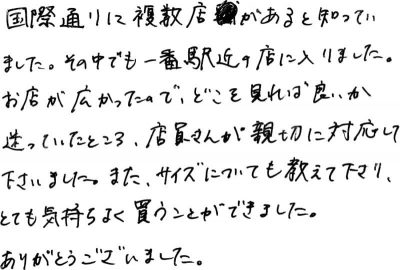 国際通りに複数店があると知ってい
ました。その中でも一番駅近の店に入りました。
お店が広かったので、どこを見れば良いか
迷っていたところ、店員さんが親切に対応して
下さいました。また、サイズについても教えて下さり、
とても気持ちよく買うことができました。
ありがとうございました。